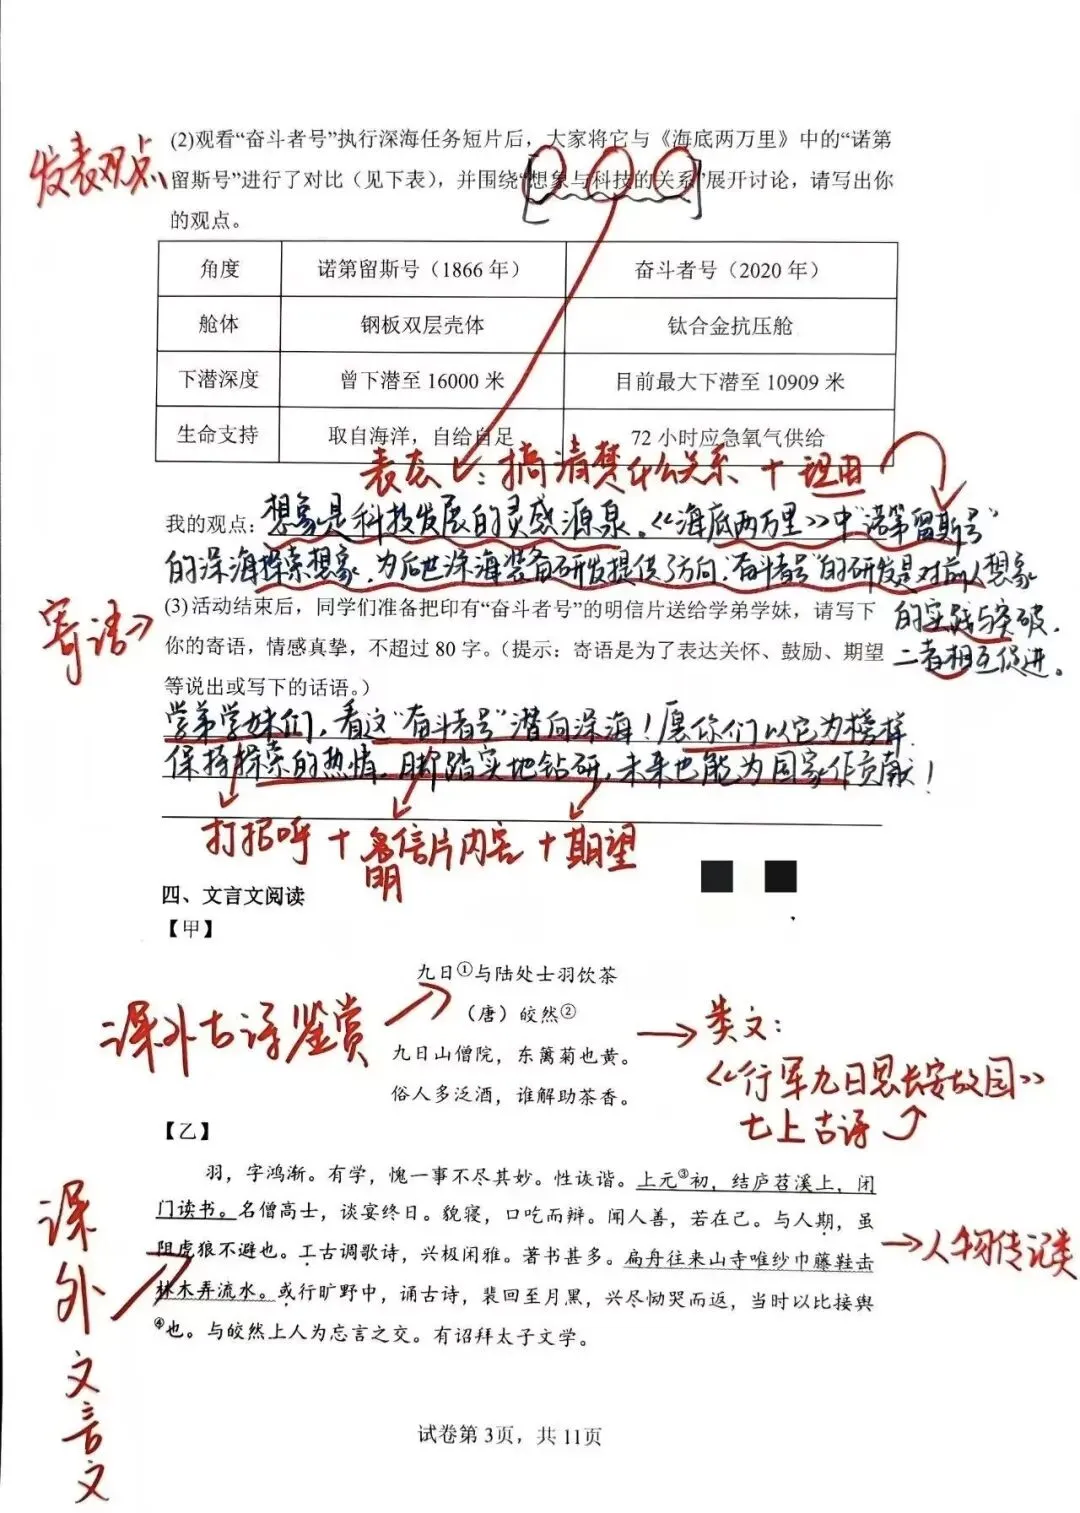 发表观点
(2)观看“奋斗者号”执行深海任务短片后，大家将它与《海底两万里》中的“诺第
留斯号”进行了对比（见下表），并围绕“想象与科技的关系”展开讨论，请写出你
的观点。
角度 诺第留斯号（1866 年） 奋斗者号（2020 年）
舱体 钢板双层壳体 钛合金抗压舱
下潜深度 曾下潜至 16000 米 目前最大下潜至 10909 米
生命支持 取自海洋，自给自足 72 小时应急氧气供给
表态：搞清楚什么关系 + 理由
我的观点：想象是科技发展的灵感源泉。《海底两万里》中“诺第留斯号”
的深海探索想象，为后世深海装备研发提供了方向，“奋斗者号”的研发是对前人想象
的实践与突破，
二者相互促进。
寄语→
(3)活动结束后，同学们准备把印有“奋斗者号”的明信片送给学弟学妹，请写下
你的寄语，情感真挚，不超过 80 字。（提示：寄语是为了表达关怀、鼓励、期望
等说出或写下的话语。）
学弟学妹们，看这“奋斗者号”潜向深海！愿你们以它为榜样，
保持探索的热情，脚踏实地钻研，未来也能为国家作贡献！
打招呼 + 明信片内容 + 期望
四、文言文阅读
【甲】
九日①与陆处士羽饮茶
（唐）皎然②
九日山僧院，东篱菊也黄。
俗人多泛酒，谁解助茶香。
课外古诗鉴赏
→ 类文：
《行军九日思长安故园》
七上古诗
【乙】
羽，字鸿渐。有学，愧一事不尽其妙。性诙谐。上元③初，结庐苕溪上，闭
门读书。名僧高士，谈宴终日。貌寝，口吃而辩。闻人善，若在己。与人期，虽
阻虎狼不避也。工古调歌诗，兴极闲雅。著书甚多。扁舟往来山寺唯纱巾藤鞋击
林木弄流水。或行旷野中，诵古诗，裴回至月黑，兴尽恸哭而返，当时以比接舆
④也。与皎然上人为忘言之交。有诏拜太子文学。
课外文言文
→人物传记类
试卷第 3页，共 11页